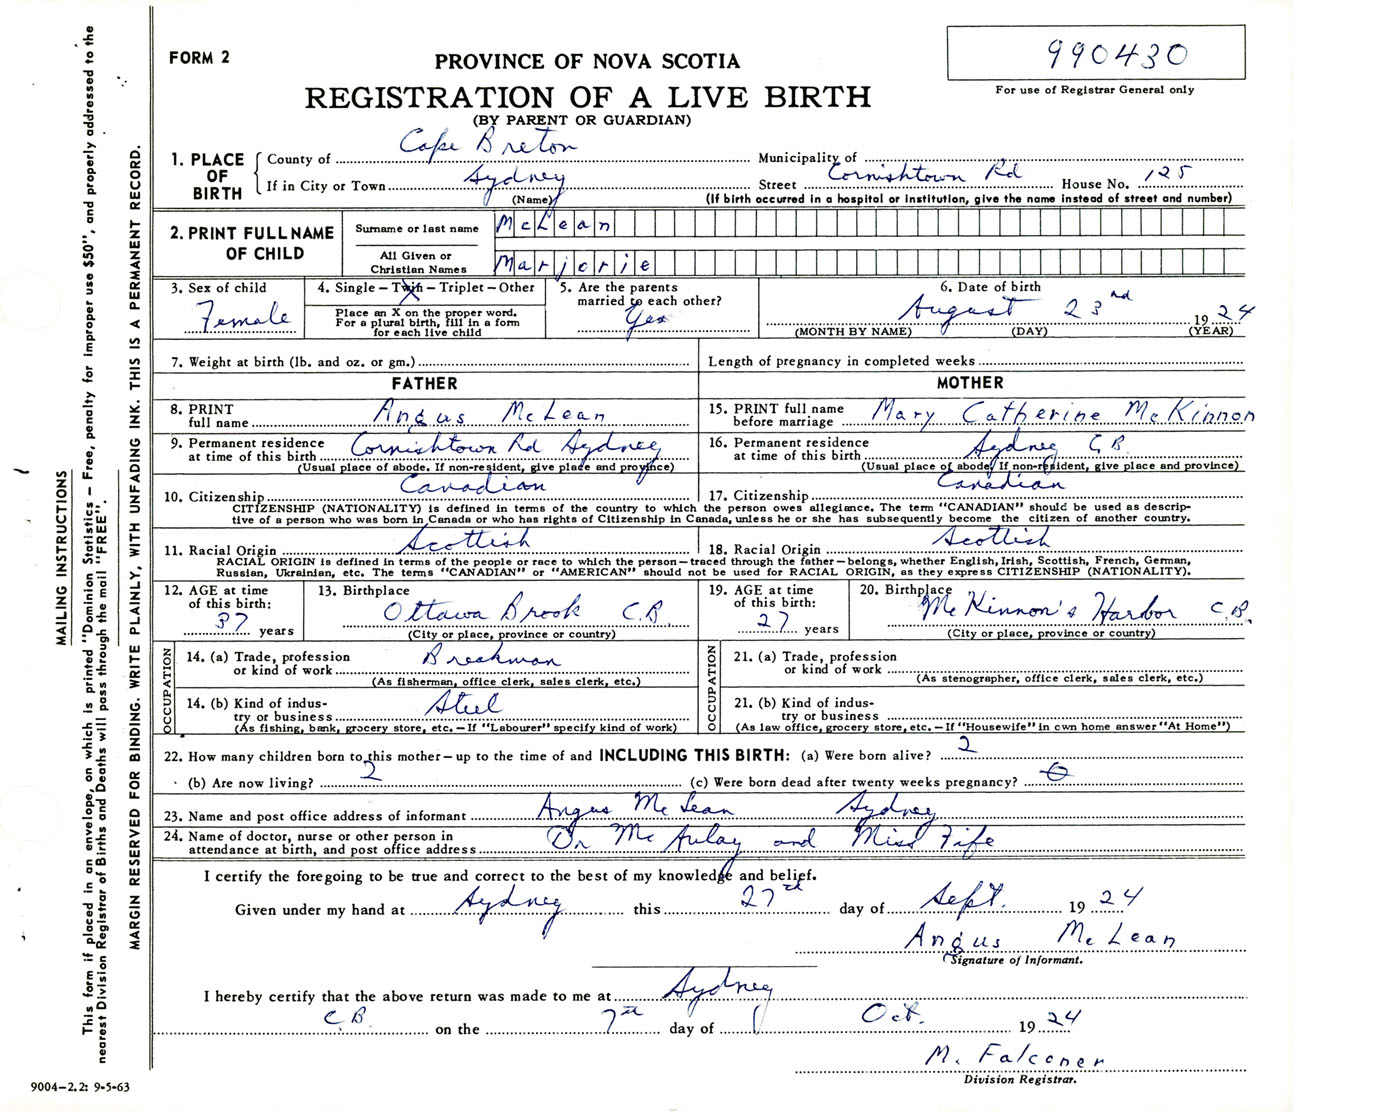 FORM 2
PROVINCE OF NOVA SCOTIA
990430
For use of Registrar General only
REGISTRATION OF A LIVE BIRTH
(BY PARENT OR GUARDIAN)
1. PLACE OF BIRTH
County of Cape Breton Municipality of
If in City or Town Sydney Street Cornishtown Rd House No. 125
(Name) (If birth occurred in a hospital or institution, give the name instead of street and number)
2. PRINT FULL NAME OF CHILD
Surname or last name McLean
All Given or Christian Names Marjorie
3. Sex of child Female
4. Single – Twin – Triplet – Other
Place an X on the proper word.
For a plural birth, fill in a form
for each live child
5. Are the parents
married to each other?
Yes
6. Date of birth
August 23rd 1924
(MONTH BY NAME) (DAY) (YEAR)
7. Weight at birth (lb. and oz. or gm.) Length of pregnancy in completed weeks
FATHER MOTHER
8. PRINT
full name Angus McLean
15. PRINT full name
before marriage Mary Catherine McKinnon
9. Permanent residence
at time of this birth Cornishtown Rd Sydney
(Usual place of abode. If non-resident, give place and province)
16. Permanent residence
at time of this birth Sydney C.B.
(Usual place of abode. If non-resident, give place and province)
10. Citizenship Canadian 17. Citizenship Canadian
CITIZENSHIP (NATIONALITY) is defined in terms of the country to which the person owes allegiance. The term "CANADIAN" should be used as descrip-
tive of a person who was born in Canada or who has rights of Citizenship in Canada, unless he or she has subsequently become the citizen of another country.
11. Racial Origin Scottish 18. Racial Origin Scottish
RACIAL ORIGIN is defined in terms of the people or race to which the person – traced through the father – belongs, whether English, Irish, Scottish, French, German,
Russian, Ukrainian, etc. The terms "CANADIAN" or "AMERICAN" should not be used for RACIAL ORIGIN, as they express CITIZENSHIP (NATIONALITY).
12. AGE at time
of this birth:
37 years
13. Birthplace
Ottawa Brook C.B.
(City or place, province or country)
19. AGE at time
of this birth:
27 years
20. Birthplace
McKinnon's Harbor C.B.
(City or place, province or country)
OCCUPATION
14. (a) Trade, profession
or kind of work Breakman
(As fisherman, office clerk, sales clerk, etc.)
14. (b) Kind of indus-
try or business Steel
(As fishing, bank, grocery store, etc. – If "Labourer" specify kind of work)
OCCUPATION
21. (a) Trade, profession
or kind of work
(As stenographer, office clerk, sales clerk, etc.)
21. (b) Kind of indus-
try or business
(As law office, grocery store, etc. – If "Housewife" in own home answer "At Home")
22. How many children born to this mother – up to the time of and INCLUDING THIS BIRTH: (a) Were born alive? 2
(b) Are now living? 2 (c) Were born dead after twenty weeks pregnancy? 0
23. Name and post office address of informant Angus McLean Sydney
24. Name of doctor, nurse or other person in
attendance at birth, and post office address Dr McAulay and Miss Fife
I certify the foregoing to be true and correct to the best of my knowledge and belief.
Given under my hand at Sydney this 27th day of Sept. 1924
Angus McLean
Signature of Informant.
I hereby certify that the above return was made to me at Sydney
C.B. on the 7th day of Oct. 1924
M. Falconer
Division Registrar.
9004–2.2: 9-5-63
MAILING INSTRUCTIONS
This form if placed in an envelope, on which is printed "Dominion Statistics – Free, penalty for improper use $50", and properly addressed to the
nearest Division Registrar of Births and Deaths will pass through the mail "FREE".
MARGIN RESERVED FOR BINDING. WRITE PLAINLY, WITH UNFADING INK. THIS IS A PERMANENT RECORD.